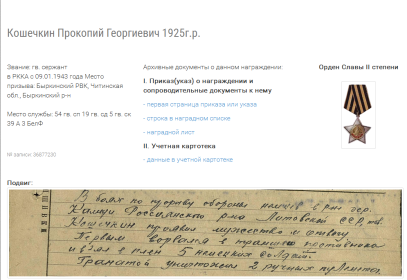 Кошечкин Прокопий Георгиевич 1925г.р.
Звание: гв. сержант
в РККА с 09.01.1943 года Место
призыва: Быркинский РВК, Читинская
обл., Быркинский р-н
Место службы: 54 гв. сп 19 гв. сд 5 гв. ск
39 А 3 БелФ
№ записи: 36877230
Архивные документы о данном награждении:
I. Приказ(указ) о награждении и
сопроводительные документы к нему
- первая страница приказа или указа
- строка в наградном списке
- наградной лист
II. Учетная картотека
- данные в учетной картотеке
Орден Славы II степени
Подвиг:
В боях по прорыву обороны немцев в р-не дер.
Россиенского р-на Литовской ССР, тов.
Кошечкин проявил мужество и отвагу
Первым ворвался в траншею противника
и взял в плен 5 немецких солдат.
Гранатой уничтожил 2 ручных пулемета.